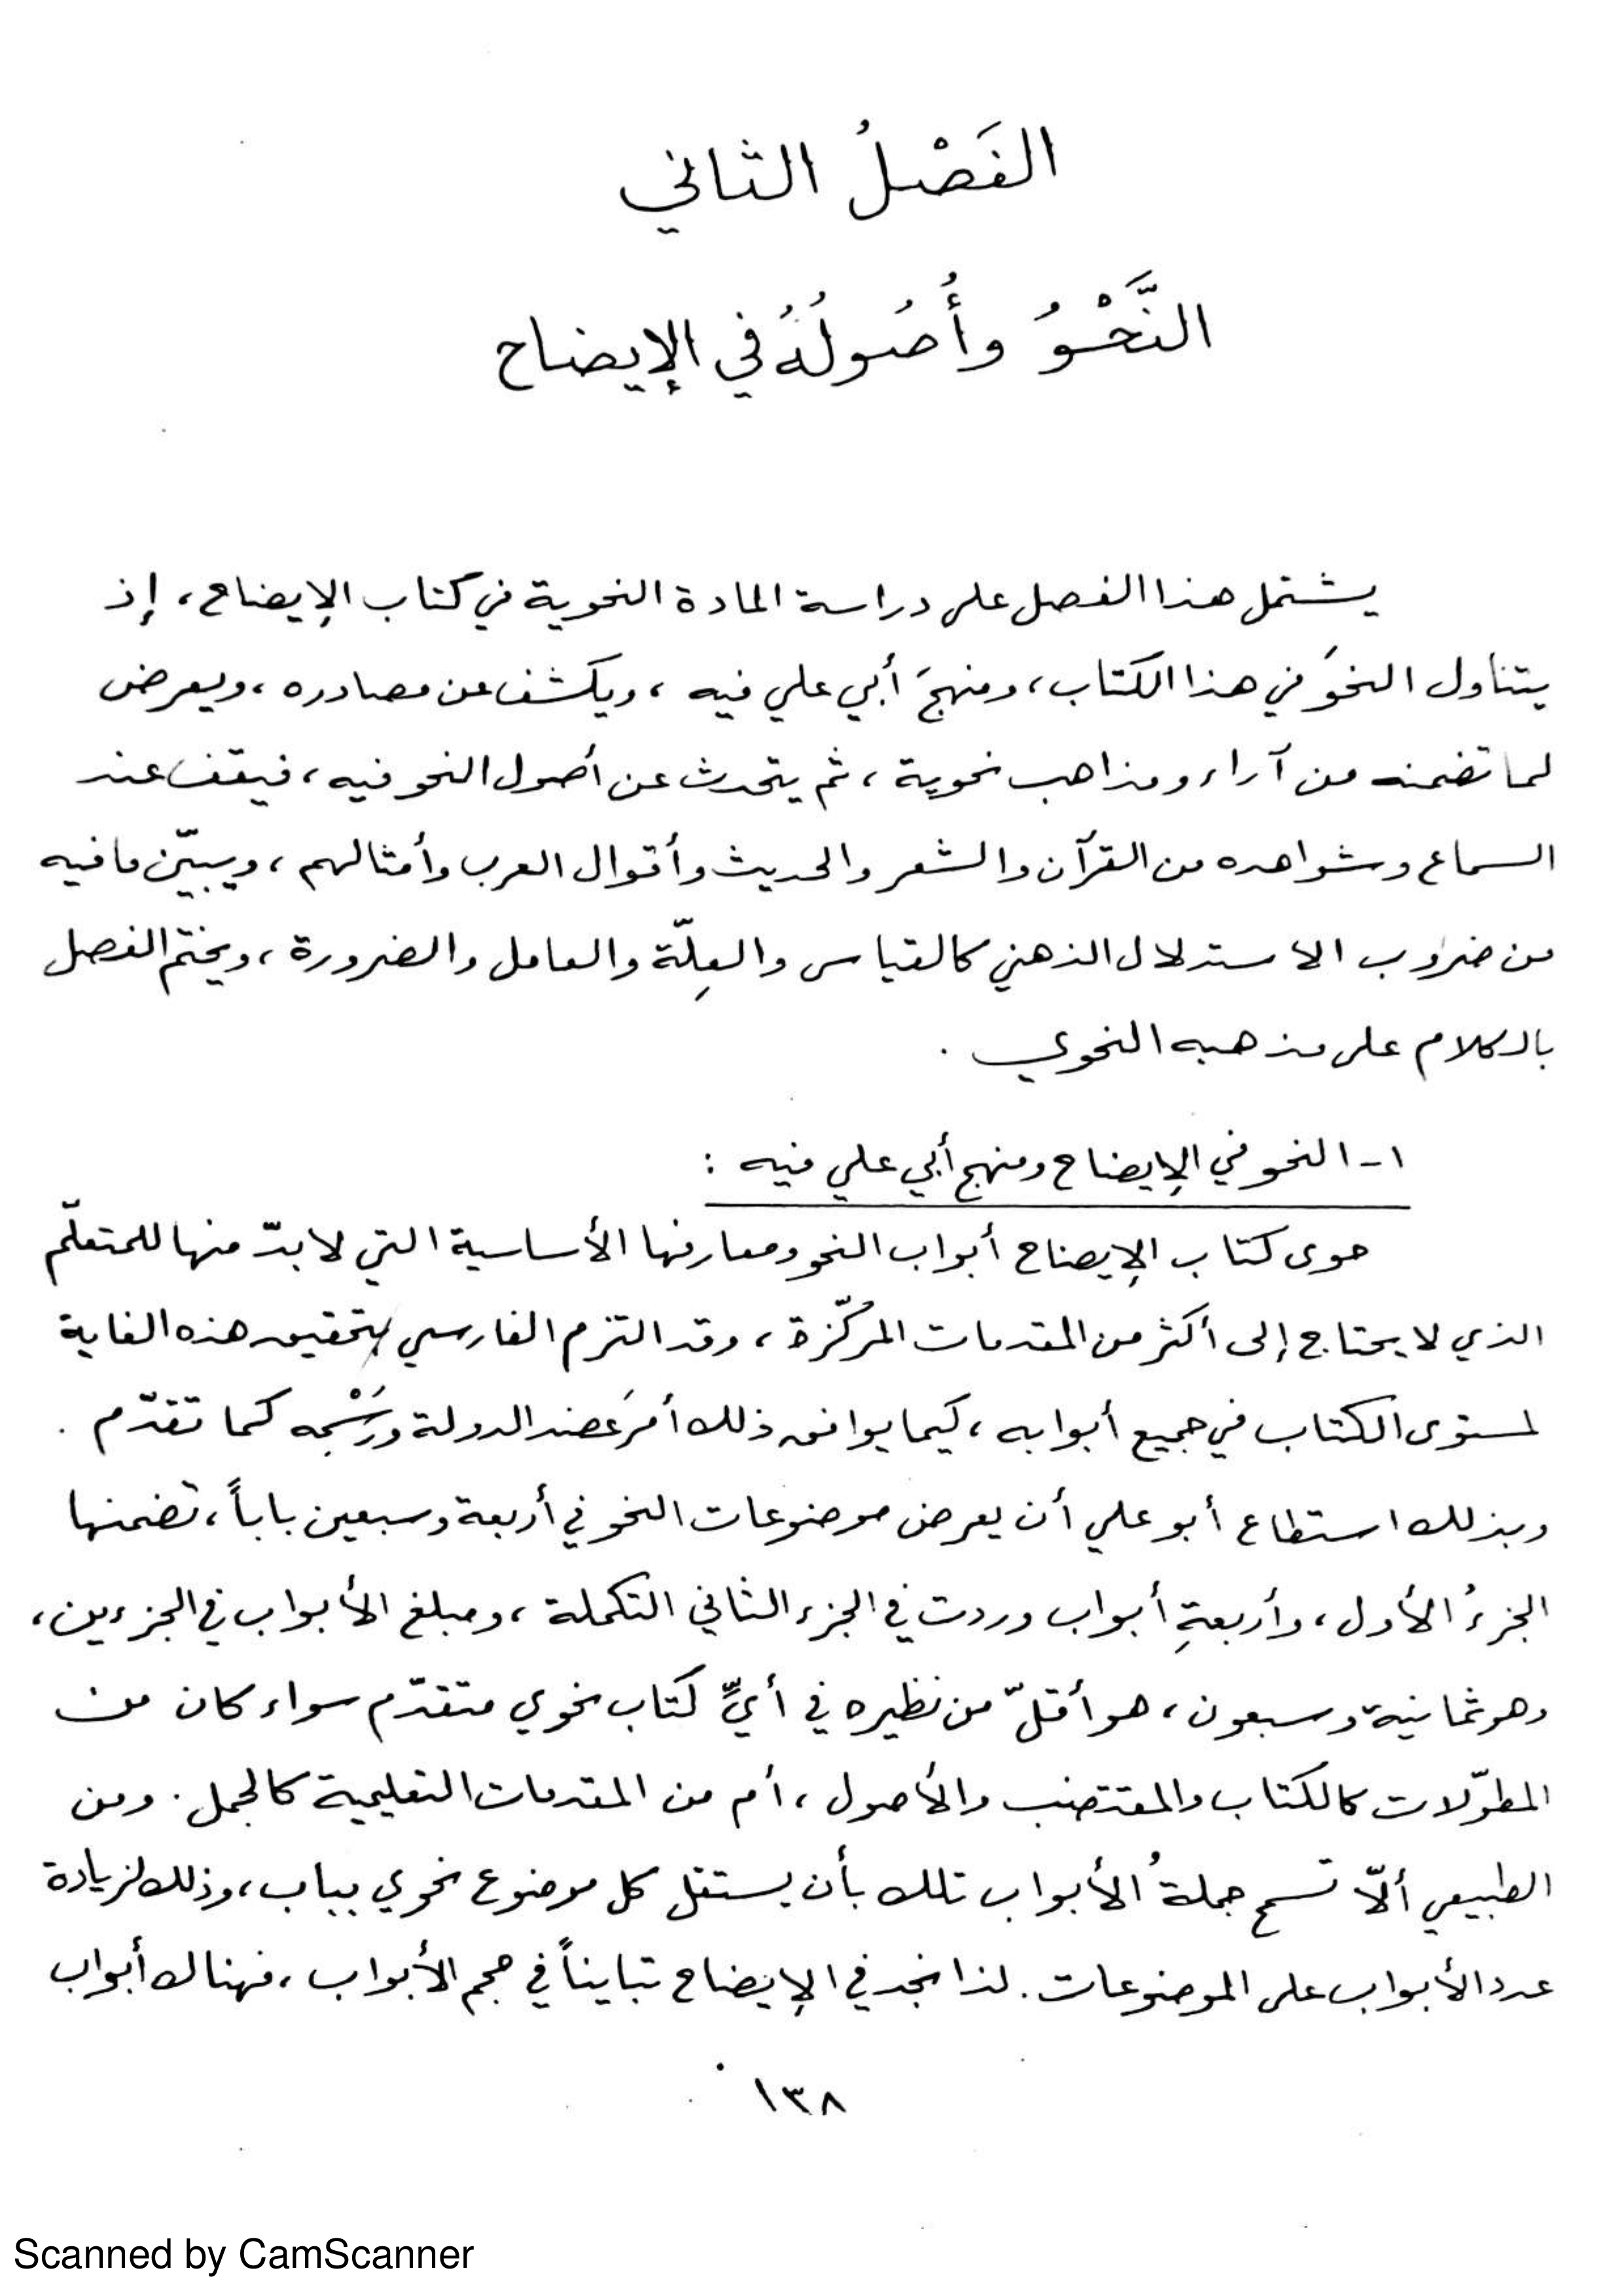 الفَصْلُ الثاني
النَّحْوُ وأُصُولُهُ في الإيضاح
يشتمل هذا الفصل على دراسة المادة النحوية في كتاب الإيضاح، إذ
يتناول النحوَ في هذا الكتاب، ومنهجَ أبي علي فيه، ويكشف عن مصادره، ويعرض
لما تضمنه من آراء ومذاهب نحوية، ثم يتحدث عن أصول النحو فيه، فيقف عند
السماع وشواهده من القرآن والشعر والحديث وأقوال العرب وأمثالهم، ويبيّن ما فيه
من ضروب الاستدلال الذهني كالقياس والعِلّة والعامل والضرورة، ويختم الفصل
بالكلام على مذهبه النحوي.
١- النحو في الإيضاح ومنهج أبي علي فيه :
حوى كتاب الإيضاح أبواب النحو ومعارفها الأساسية التي لابدّ منها للمتعلّم
الذي لا يحتاج إلى أكثر من المقدمات المركّزة، وقد التزم الفارسي بتحقيق هذه الغاية
لمستوى الكتاب في جميع أبوابه، كيما يوافق ذلك أمرَ عضد الدولة ورَسْمِه كما تقدّم.
وبذلك استطاع أبو علي أن يعرض موضوعات النحو في أربعة وسبعين باباً، تضمنها
الجزءُ الأول، وأربعةِ أبواب وردت في الجزء الثاني التكملة، ومبلغ الأبواب في الجزءين،
وهو ثمانية وسبعون، هو أقلّ من نظيره في أيِّ كتاب نحوي متقدّم سواء كان من
المطوّلات كالكتاب والمقتضب والأصول، أم من المقدمات التعليمية كالجمل. ومن
الطبيعي ألاّ تسمح جملةُ الأبواب تلك بأن يستقل كل موضوع نحوي بباب، وذلك لزيادة
عدد الأبواب على الموضوعات. لذا نجد في الإيضاح تبايناً في حجم الأبواب، فهناك أبواب
١٣٨
Scanned by CamScanner